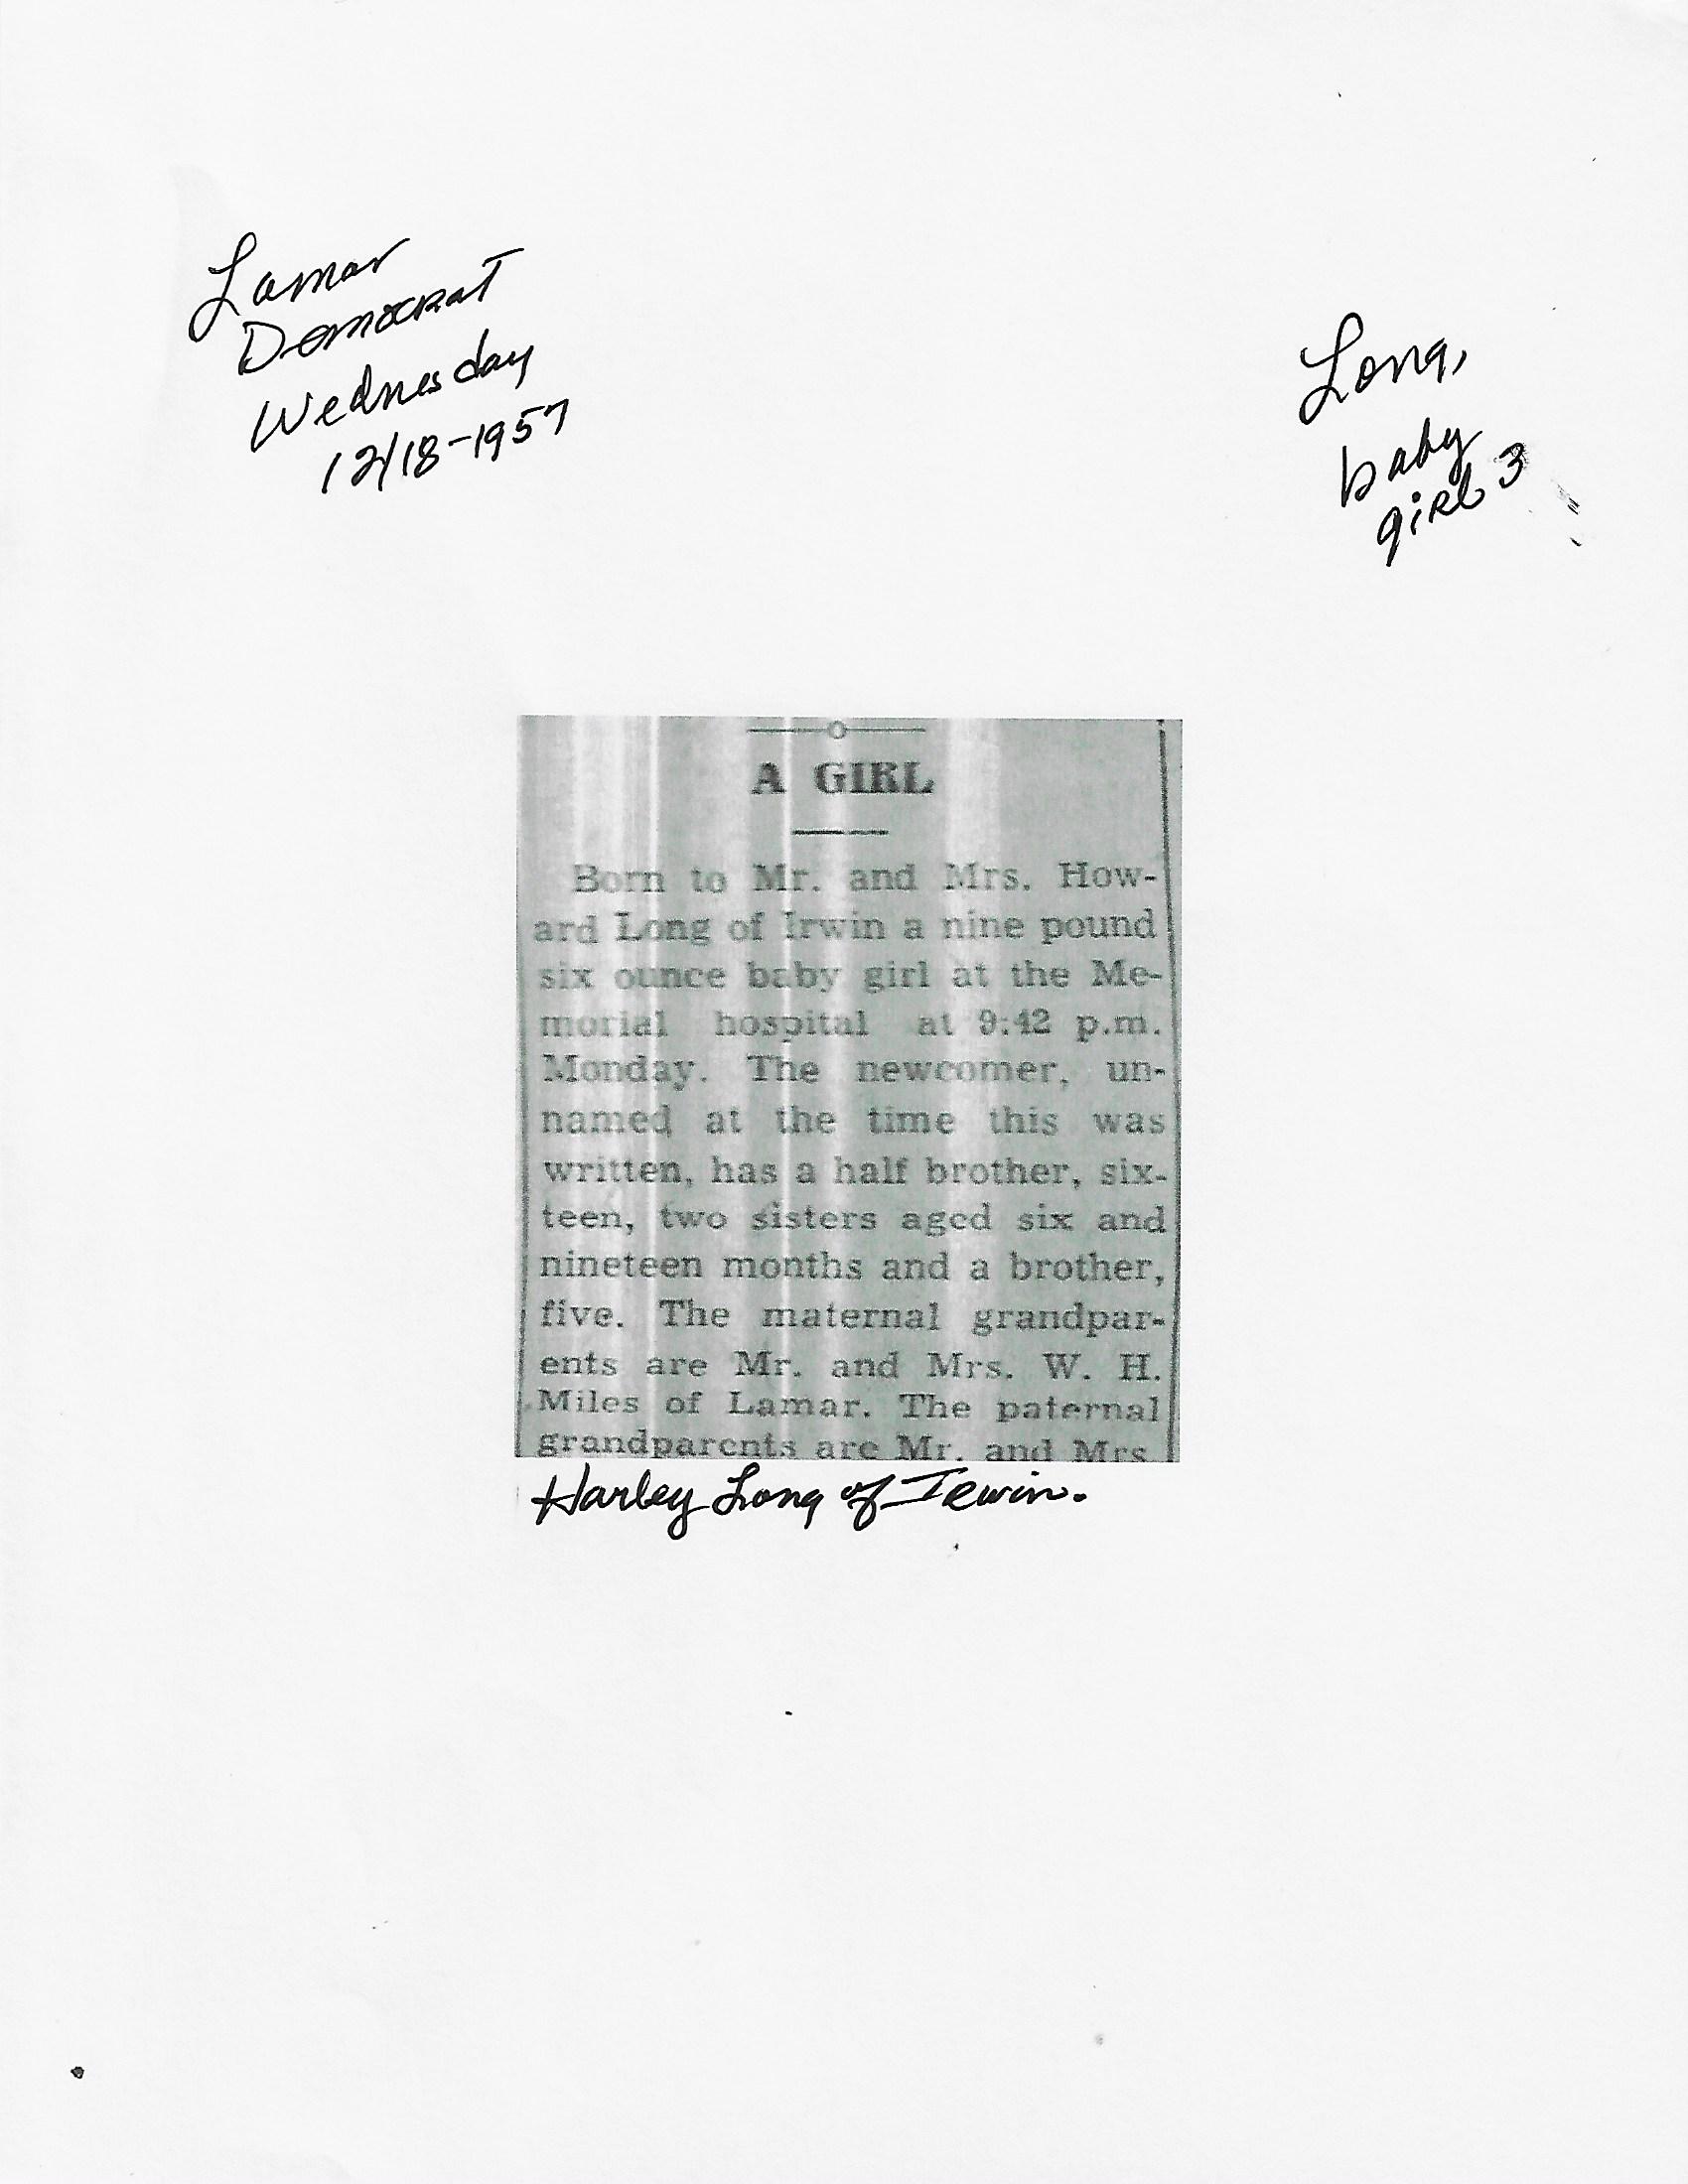 Lamar
Democrat
Wednesday
12/18-1957
Long,
baby
girl 3
A GIRL
Born to Mr. and Mrs. How-
ard Long of Irwin a nine pound
six ounce baby girl at the Me-
morial hospital at 9:42 p.m.
Monday. The newcomer, un-
named at the time this was
written, has a half brother, six-
teen, two sisters aged six and
nineteen months and a brother,
five. The maternal grandpar-
ents are Mr. and Mrs. W. H.
Miles of Lamar. The paternal
grandparents are Mr. and Mrs
Harley Long of Irwin.